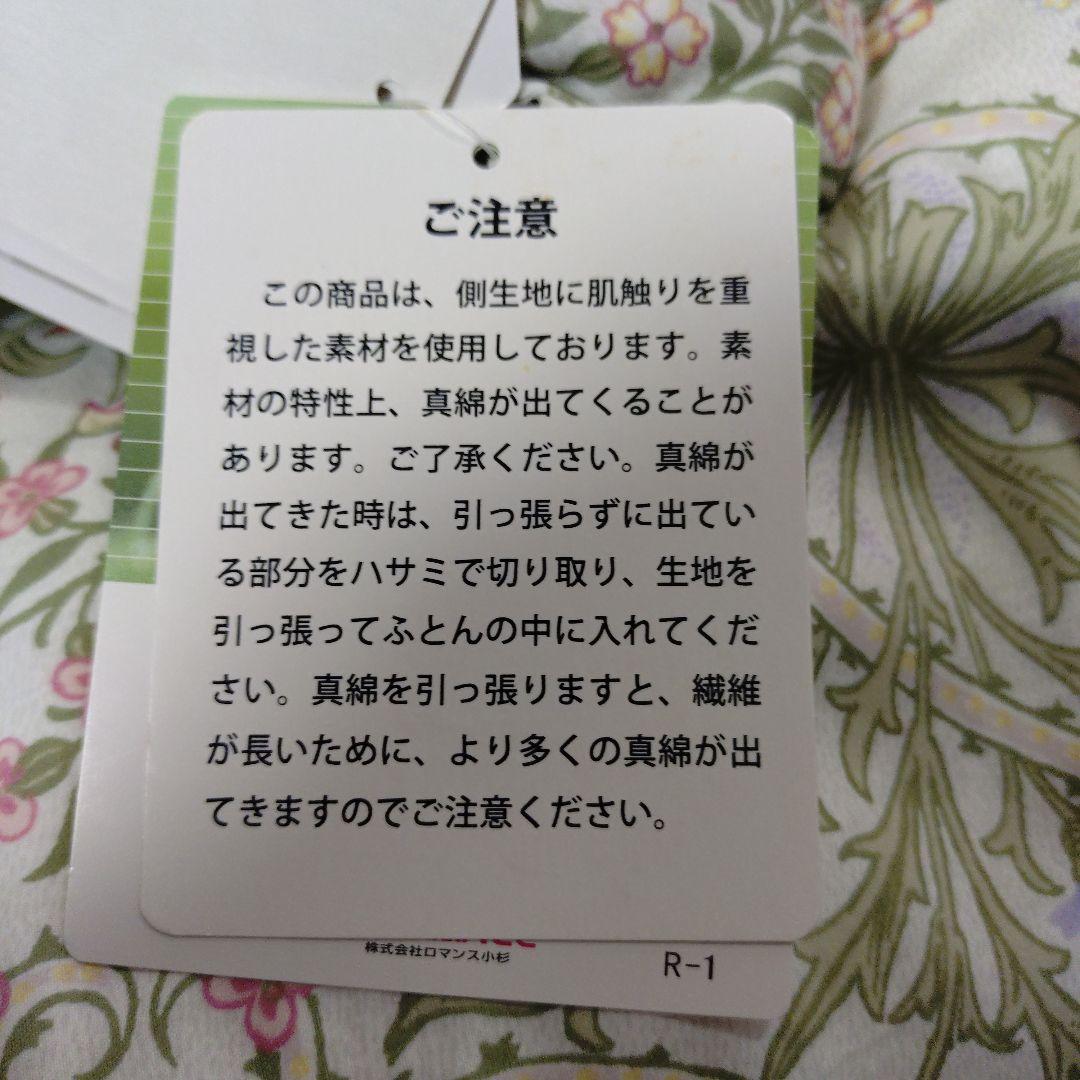 ご注意
この商品は、側生地に肌触りを重
視した素材を使用しております。素
材の特性上、真綿が出てくることが
あります。ご了承ください。真綿が
出てきた時は、引っ張らずに出てい
る部分をハサミで切り取り、生地を
引っ張ってふとんの中に入れてくだ
さい。真綿を引っ張りますと、繊維
が長いために、より多くの真綿が出
てきますのでご注意ください。
株式会社ロマンス小杉
R-1